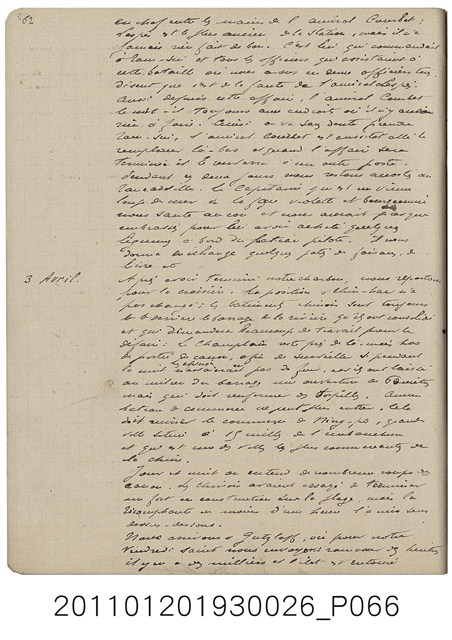 62
en chef entre les mains de l'amiral Courbet;
Lespès est le plus ancien de la station, mais il n'a
jamais rien fait de bon. C'est lui qui commandait
à Tam-sui et tous les officiers qui assistaient à
cette bataille où nous avons eu deux officiers tués
disent que c'est de la faute de l'amiral Lespès.
Aussi depuis cette affaire, l'amiral Courbet
le met-il toujours aux endroits où il n'y a
rien à faire. Ainsi on va sans doute prendre
Tam-Sui, l'amiral Courbet est aussitôt allé le
remplacer là-bas et quand l'affaire sera
terminée il l'enverra à un autre poste.
Pendant ces deux jours nous restons accostés au
. Le Capitaine qui est un vieux
loup de mer à la face violette et bourgeonnée
nous saute au cou et nous aurait presque
embrassés pour lui avoir acheté quelques
légumes à bord du bateau pilote. Il nous
donne en échange quelques pâtés de faisan, de
lièvre etc
3 Avril.
Après avoir terminé notre charbon, nous repartons
pour la croisière. La position à Chin-haë n'a
pas changé; les bâtiments chinois sont toujours
derrière le barrage de la rivière qu'ils ont consolidé
et qui demandera beaucoup de travail pour le
défaire. Le Champlain reste près de là, mais hors
de portée de canon, afin de surveiller si pendant
la nuit les chinois n'essaieraient pas de fuir, car ils ont laissé
au milieu du barrage une ouverture de mètres
mais qui doit renfermer des torpilles. Aucun
bateau de commerce ne peut plus entrer. Cela
doit ruiner le commerce de Ning-po, grande
ville située à 15 milles de l'embouchure
et qui est une des villes les plus commerçantes de
la Chine.
Jour et nuit on entend de nombreux coups de
canon. Les chinois avaient essayé de terminer
un fort en construction sur la plage, mais la
Triomphante en moins d'une heure l'a mis sens
dessus-dessous.
Nous arrivons à Gutzlaff, où pour notre
Vendredi saint nous envoyons ramasser des huîtres
il y en a des milliers et l'îlot est entouré
201101201930026_P066